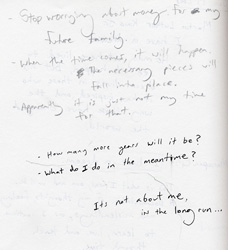 - Stop worrying about money for my
future family.
- When the time comes, it will happen.
The necessary pieces will
fall into place.
- Apparently it is just not my time
for that.
- How many more years will it be?
- What do I do in the meantime?
Its not about me,
in the long run...